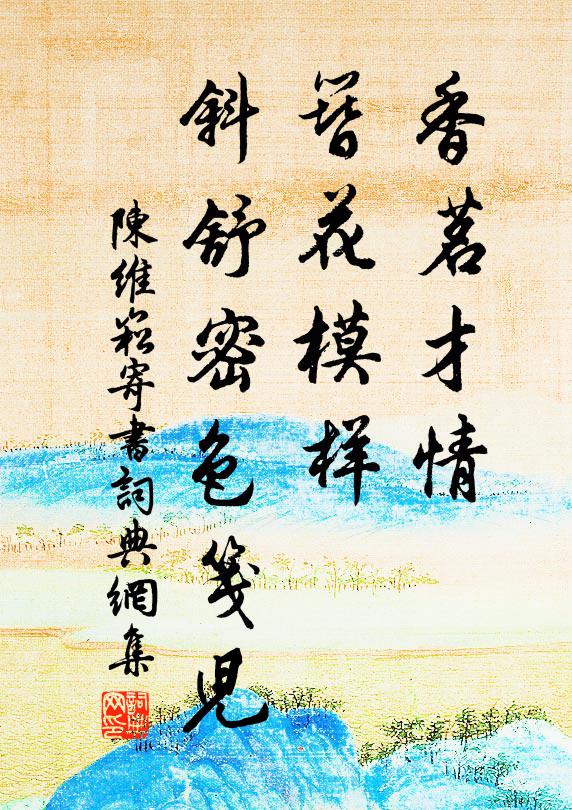 香茗才情
簪花模样
斜舒密色笺児
陳維崧寄書詞典網集